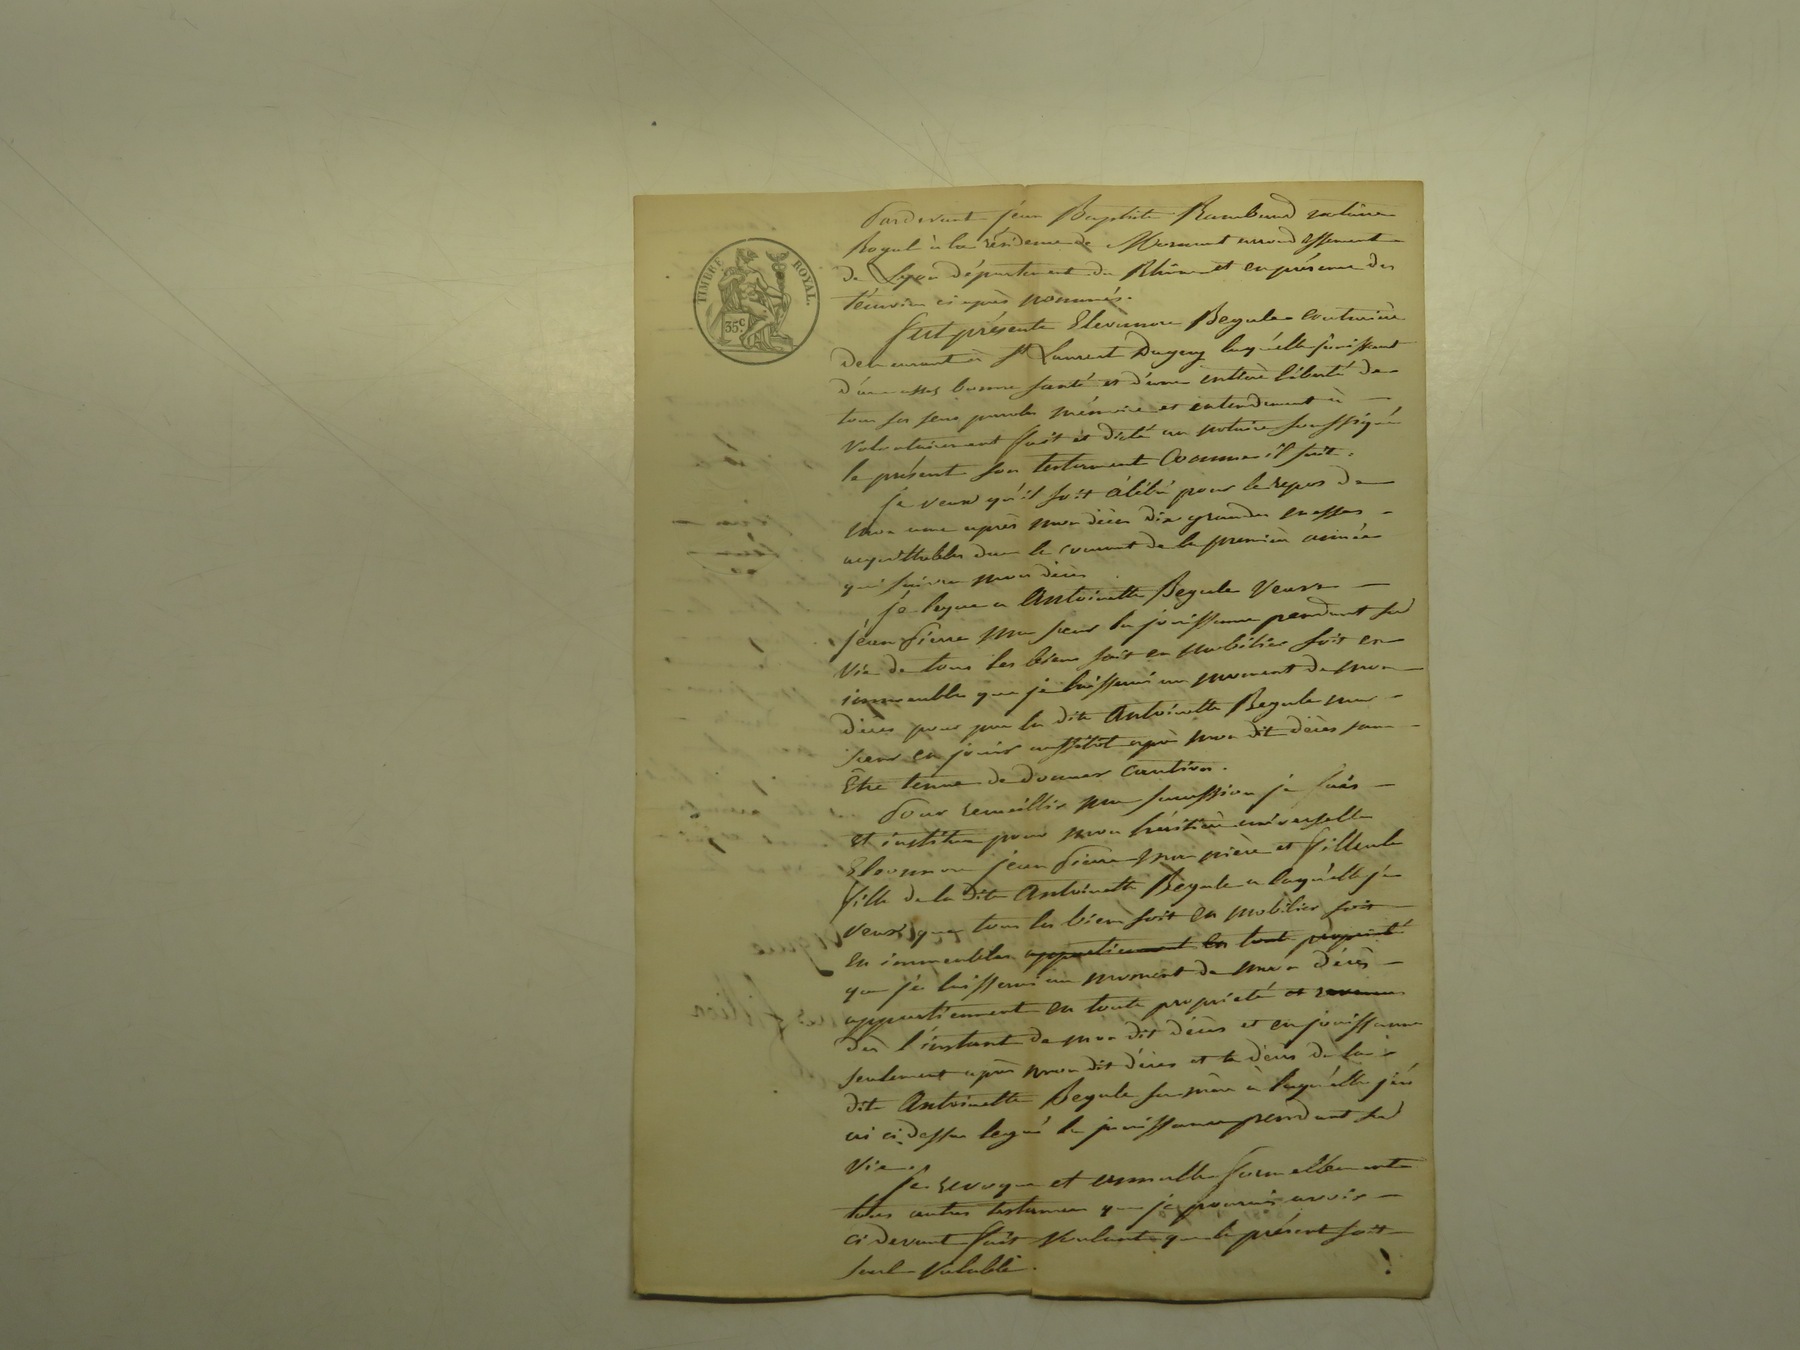 TIMBRE ROYAL.
35c
Pardevant jean Baptiste Rambaud notaire
Royal à la résidence de Mornant arrondissement
de Lyon département du Rhône et en présence des
témoins ci après nommés.
fut présente Eleonnore Begule couturière
demeurant à St Laurent Dagny laquélle jouissant
d'une assez bonne santé et d'une entière liberté de
tous ses sens parole mémoire et entendement à
volontairement fait et dicté au notaire soussigné
le présent son testament Comme il suit.
je veux qu'il soit célébré pour le repos de
mon ame après mon décès dix grandes messes
acquittables dans le courant de la première année
qui suivra mon décès
je legue a Antoinette Begule Veuve
jean Pierre ma sœur la jouissance pendant sa
vie de tous les biens soit en mobilier soit en
immeubles que je laisserai au moment de mon
décès pour par la dite Antoinette Begule ma
sœur en jouir aussitôt après mon dit décès sans
Être tenue de donner Caution.
Pour recueillir ma succession je fais
et institue pour mon héritière universelle
Eleonnore jean Pierre ma nièce et filleule
fille de la dite Antoinette Begule a laquélle je
veux que tous les biens soit en mobilier soit
en immeubles appartiennent en toute propriété
que je laisserai au moment de mon décès
appartiennent en toute propriété et revenus
dès l'instant de mon dit décès et en jouissance
seulement après mon dit décès et le décès de la
dite Antoinette Begule sa mère à laquélle j'ai
ci dessus legué la jouissance pendant sa
vie.
Je revoque et annulle formellement
tous autres testamens que je pourrais avoir
ci devant fait voulant que le présent soit
seul valable.